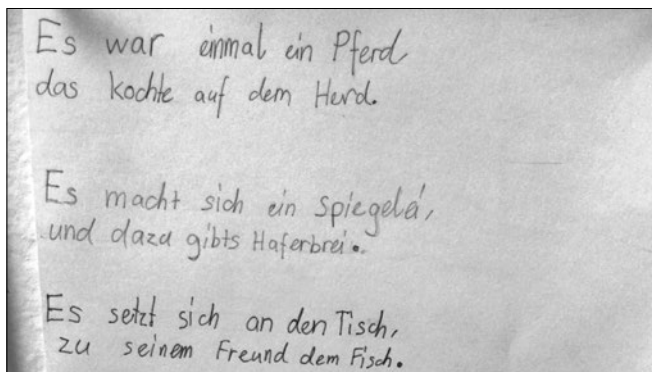 Es war einmal ein Pferd
das kochte auf dem Herd.
Es macht sich ein Spiegelei,
und dazu gibts Haferbrei.
Es setzt sich an den Tisch,
zu seinem Freund dem Fisch.